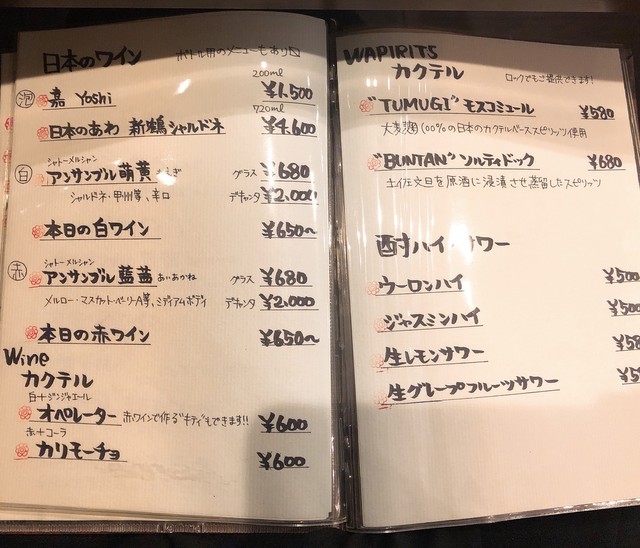 日本のワイン ボトル用のメニューもあり
200ml
泡 嘉 Yoshi ¥1.500
720ml
日本のあわ 新鶴シャルドネ ¥4.600
シャトーメルシャン
白 アンサンブル 萌黄 もえぎ グラス ¥680
シャルドネ・甲州等、辛口 デキャンタ ¥2.000
本日の白ワイン ¥650〜
シャトーメルシャン
赤 アンサンブル 藍茜 あいあかね グラス ¥680
メルロー・マスカット・ベリーA等、ミディアムボディ デキャンタ ¥2.000
本日の赤ワイン ¥650〜
Wine
カクテル
白+ジンジャエール
オペレーター 赤ワインで作る"キティ"もできます!! ¥600
赤+コーラ
カリモーチョ ¥600
WAPIRITS
カクテル ロックでもご提供できます!
"TUMUGI" モスコミュール ¥580
大麦麹100%の日本のカクテルベーススピリッツ使用
"BUNTAN" ソルティドック ¥680
土佐文旦を原酒に浸漬させ蒸留したスピリッツ
酎ハイ・サワー
ウーロンハイ ¥500
ジャスミンハイ ¥500
生レモンサワー ¥58
生グレープフルーツサワー ¥5